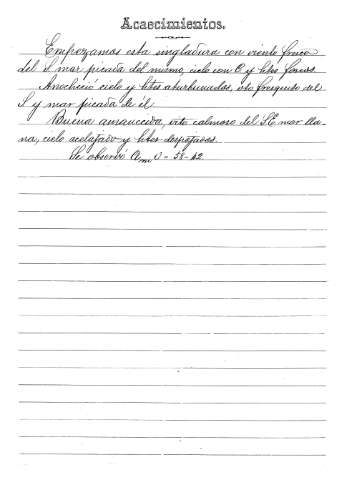 Acaecimientos.
Empezamos esta singladura con viento fresco
del S mar picada del mismo, cielo con
Anocheció cielo y htes aturbonados, vto fresquito del
S y mar picada de él.
Buena amanecida, vto calmoso del S.E mar lla-
na, cielo acelajado y htes despejados.
Se observó